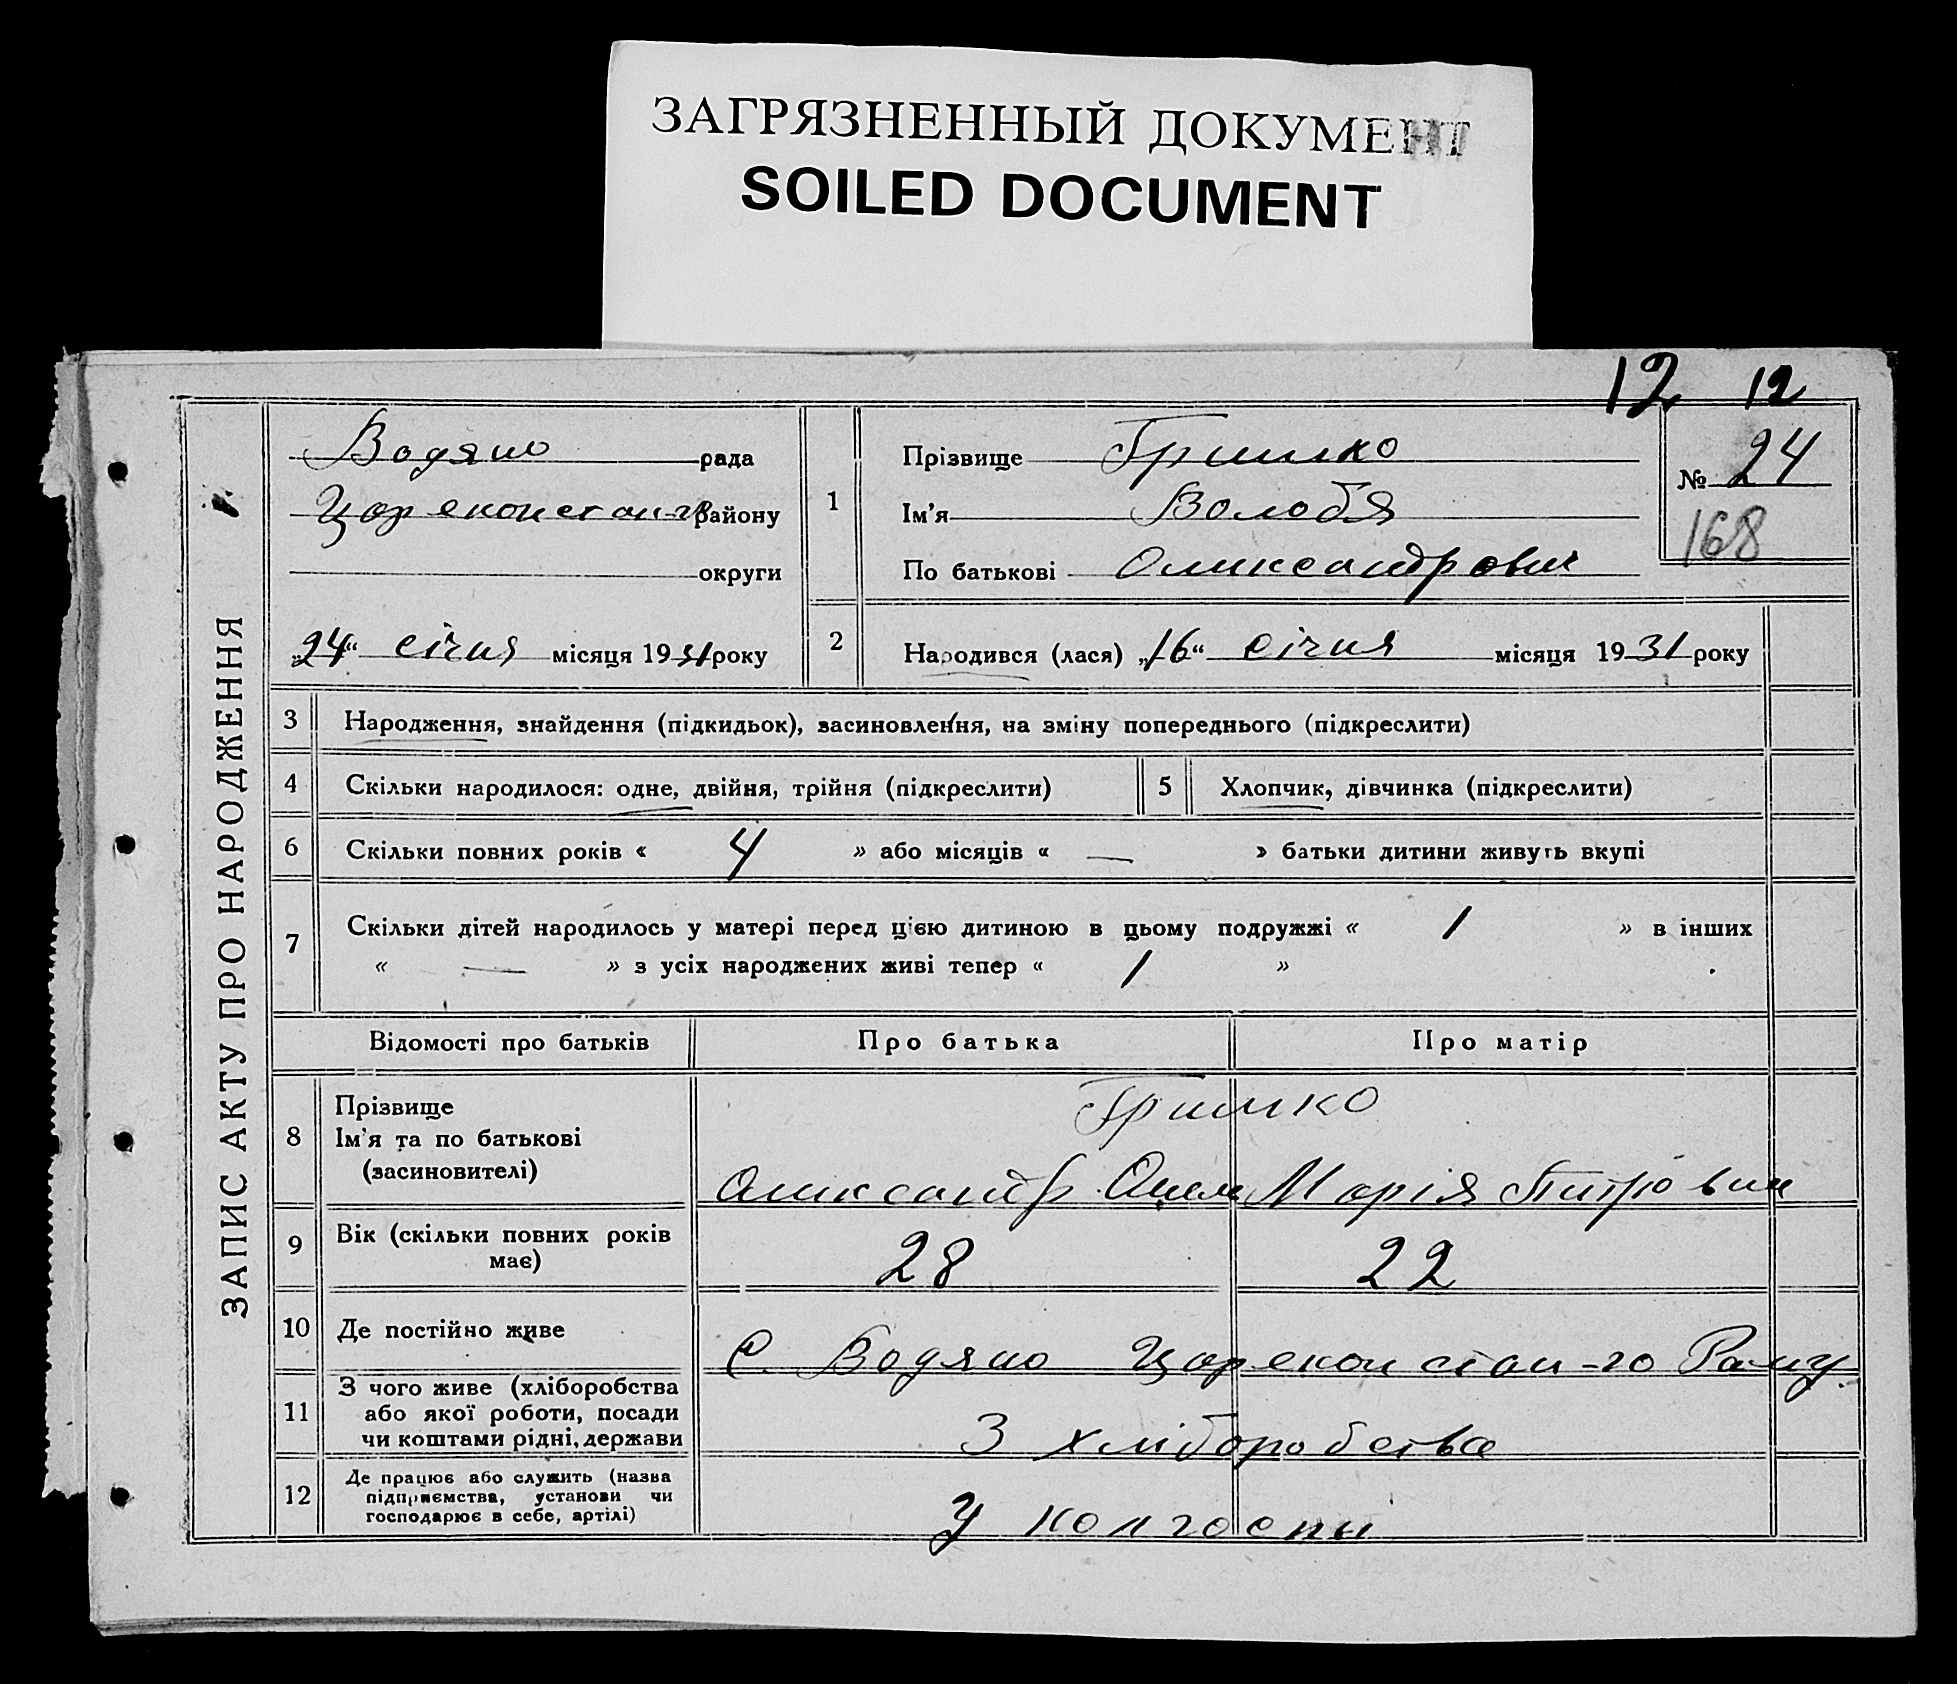 ЗАГРЯЗНЕННЫЙ ДОКУМЕНТ
SOILED DOCUMENT
12 12
ЗАПИС АКТУ ПРО НАРОДЖЕННЯ
Водяно рада
Царекон стан-го району
округи
„24“ січня місяця 1931 року
1
Прізвище Гришко
Ім'я Володя
По батькові Олександрович
№ 24
168
2 Народився (лася) „16“ січня місяця 1931 року
3 Народження, знайдення (підкидьок), засиновлення, на зміну попереднього (підкреслити)
4 Скільки народилося: одне, двійня, трійня (підкреслити) 5 Хлопчик, дівчинка (підкреслити)
6 Скільки повних років « 4 » або місяців « — » батьки дитини живуть вкупі
7 Скільки дітей народилось у матері перед цією дитиною в цьому подружжі « 1 » в інших
« — » з усіх народжених живі тепер « 1 »
Відомості про батьків Про батька Про матір
8 Прізвище
Ім'я та по батькові
(засиновителі)
Гришко
Олександр Марія
9 Вік (скільки повних років
має)
28 22
10 Де постійно живе
С. Водяно Царекон стан-го
11 З чого живе (хліборобства
або якої роботи, посади
чи коштами рідні, держави
З хліборобства
12 Де працює або служить (назва
підприємства, установи чи
господарює в себе, артілі)
У колгоспи